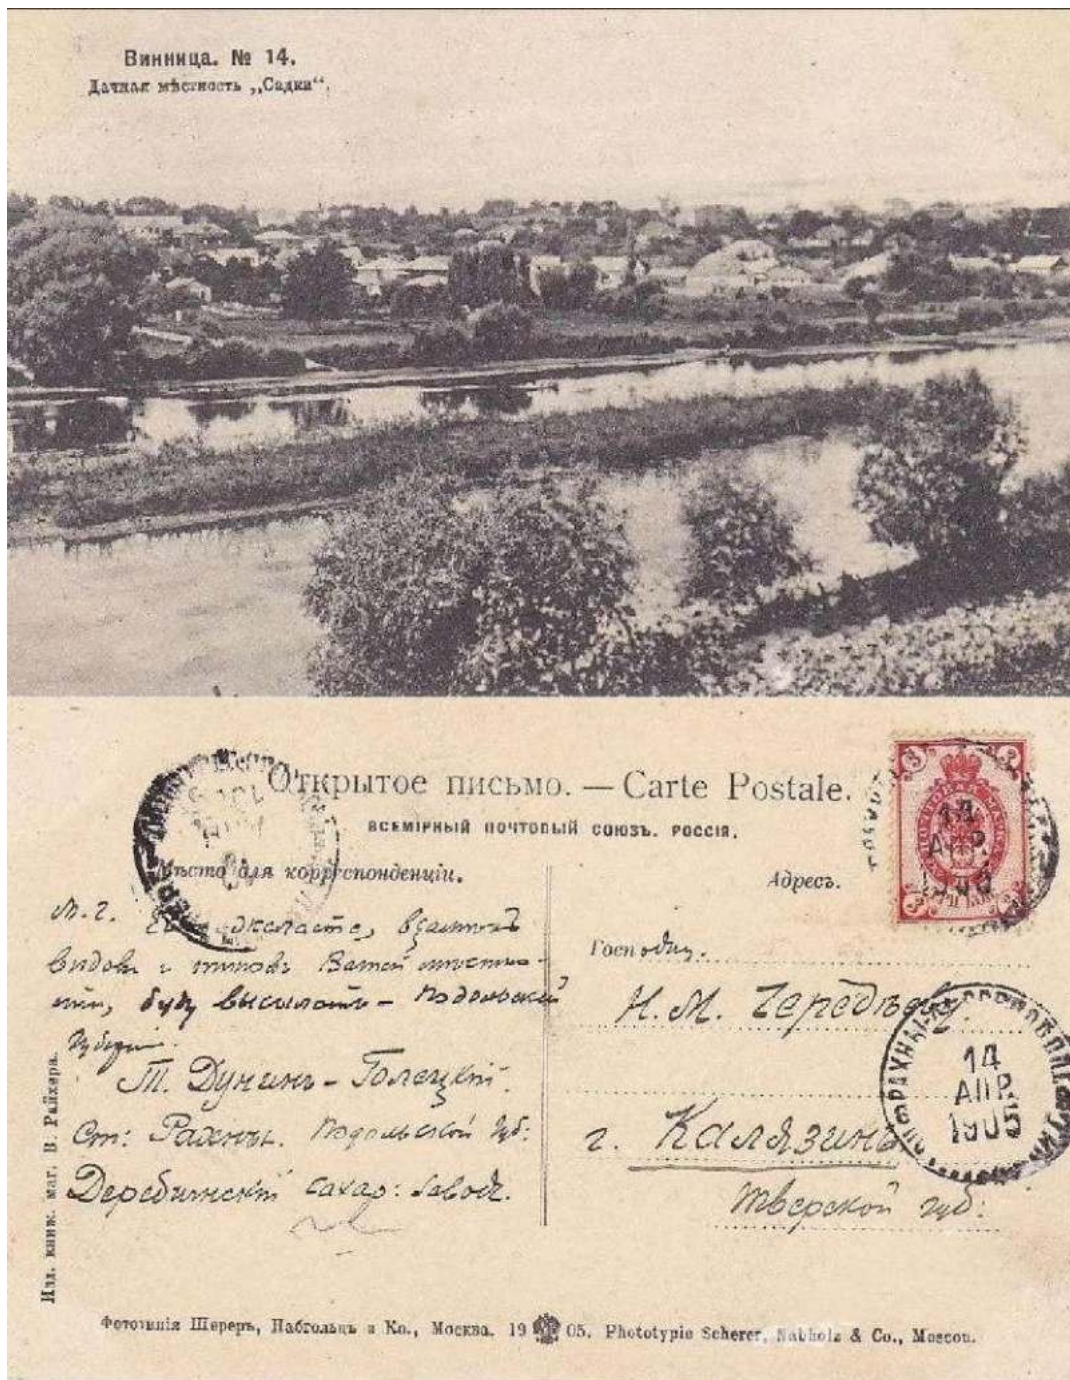 Винница. № 14.
Дачная мѣстность „Садки“.
Открытое письмо. — Carte Postale.
ВСЕМІРНЫЙ ПОЧТОВЫЙ СОЮЗЪ. РОССІЯ.
Мѣсто для корреспонденціи.
Адресъ.
М. Г. желаете, взаменъ
видовъ и типовъ Вашей мѣстно-
сти, буду высылать - Подольской
Губерніи.
Т. Дунинъ-Голецкій.
Ст: Рахны. Подольской Губ:
Деребчинскій сахар: заводъ.
Господину.
Н. М. Чередѣеву.
г. Калязинъ
Тверской губ:
3
3
3
3
14
АПР.
1905
14
АПР.
1905
РАХНЫ
Изд. книж. маг. В. Райхера.
Фототипія Шереръ, Набгольцъ и Ко., Москва. 19 05. Phototypie Scherer, Nabholz & Co., Moscou.